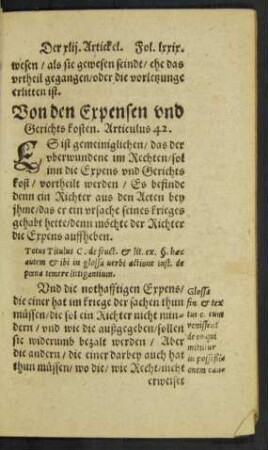 Der xlij. Artickel. Fol. lxxix.
wesen / als sie gewesen seindt / ehe das
vrtheil gegangen / oder die vorletzunge
erlitten ist.
Von den Expensen vnd
Gerichts kosten. Articulus 42.
ES ist gemeiniglichen / das der
vberwundene im Rechten / sol
inn die Expens vnd Gerichts
kost / vortheilt werden / Es befinde
denn ein Richter aus den Acten bey
jhme / das er ein vrsache seines krieges
gehabt hette / denn möchte der Richter
die Expens auffheben.
Totus Titulus C. de fruct. & lit. ex. §. hæc
autem & ibi in glossa uerbi actione inst. de
pœna temere litigantium.
Vnd die nothafftigen Expens /
die einer hat im kriege der sachen thun
müssen / die sol ein Richter nicht min-
dern / vnd wie die außgegeben / sollen
sie widerumb bezalt werden / Aber
die andern / die einer darbey auch hat
thun müssen / wo die / wie Recht / nicht
erweiset
Glossa
fin. & tex
tus c. cum
venissent
de eo qui
mittitur
in possessi
onem cau